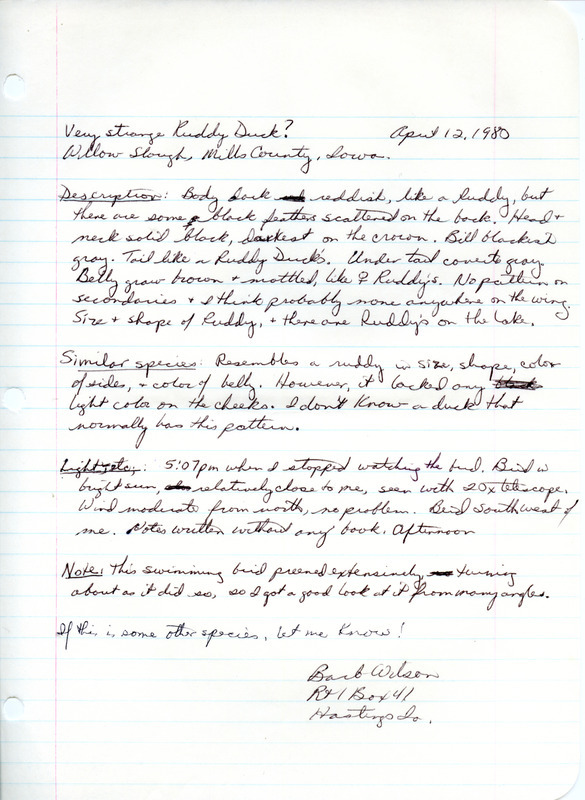 Very strange Ruddy Duck? April 12, 1980
Willow Slough, Mills County, Iowa.
Description: Body dark reddish, like a Ruddy, but
there are some black feathers scattered on the back. Head +
neck solid black, darkest on the crown. Bill blackish
gray. Tail like a Ruddy Duck's. Under tail coverts gray.
Belly gray brown + mottled, like ♀ Ruddy's. No pattern on
secondaries + I think probably none anywhere on the wing.
Size + shape of Ruddy, + there are Ruddy's on the lake.
Similar species: Resembles a ruddy in size, shape, color
of sides, + color of belly. However, it lacked any
light color on the cheeks. I don't know a duck that
normally has this pattern.
Light, etc.: 5:07pm when I stopped watching the bird. Bird in
bright sun, relatively close to me, seen with 20x telescope.
Wind moderate from north, no problem. Bird southwest of
me. Notes written without any book. Afternoon
Note: This swimming bird preened extensively, turning
about as it did so, so I got a good look at it from many angles.
If this is some other species, let me know!
Barb Wilson
Rt 1 Box 41
Hastings Ia.